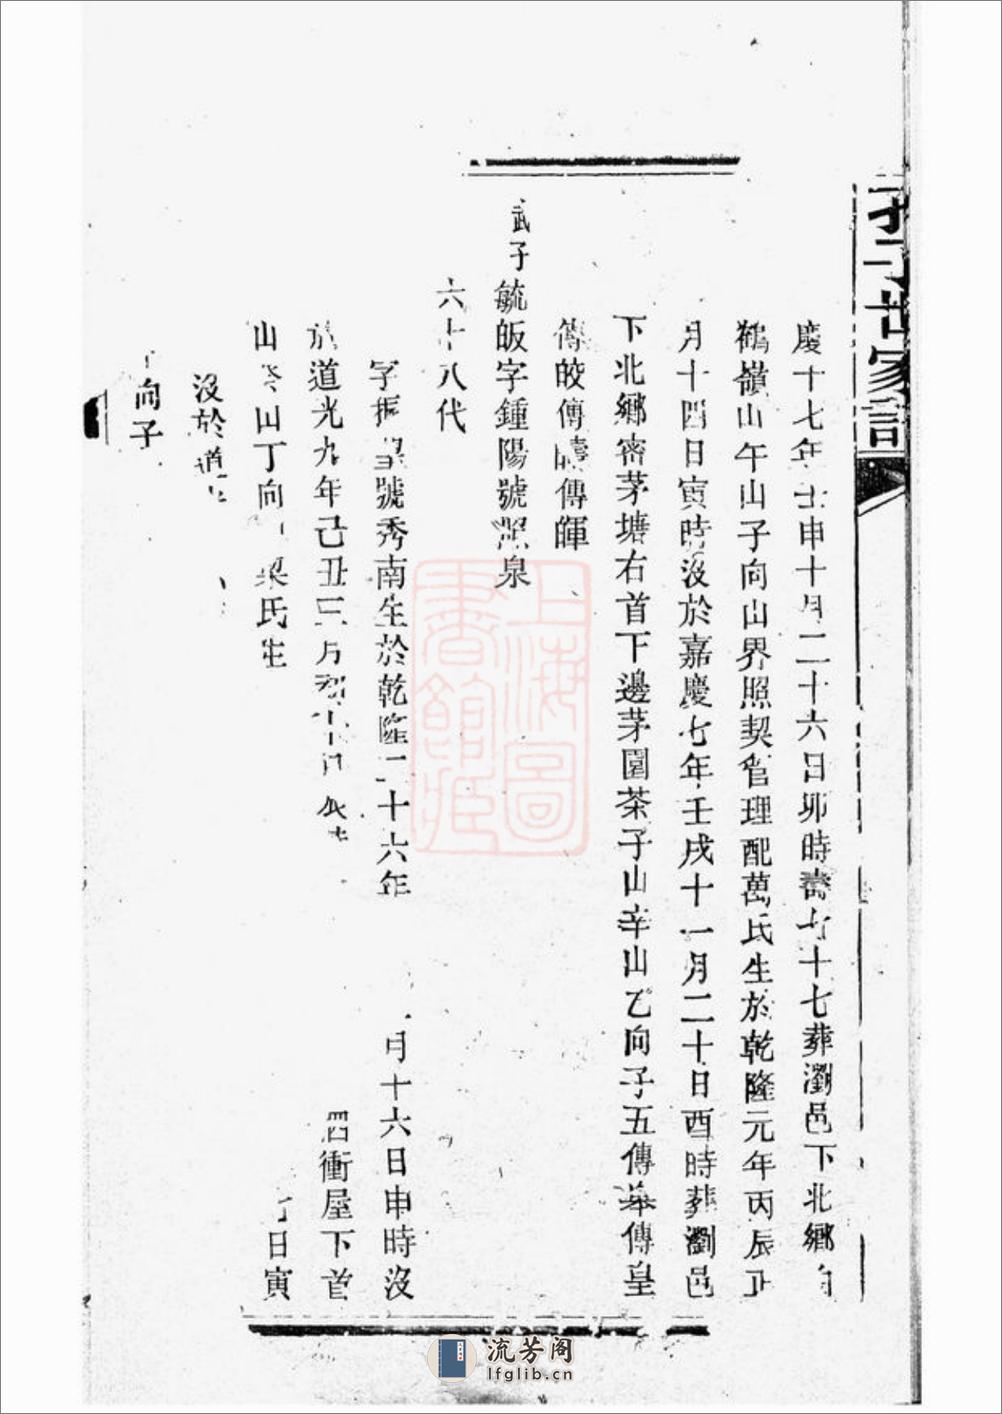 孔子世家譜
慶十七年壬申十月二十六日卯時壽七十七葬瀏邑下北鄉白
鶴嶺山午山子向山界照契管理配萬氏生於乾隆元年丙辰正
月十四日寅時沒於嘉慶七年壬戌十一月二十日酉時葬瀏邑
下北鄉密茅塘右首下邊茅園茶子山辛山乙向子五傳舉傳皇
傳皎傳疇傳暉
武子毓皈字鍾陽號照泉
六十八代
字振 號秀南生於乾隆二十六年 月十六日申時沒
於道光九年己丑三月初十日 衝屋下首
山 山丁向 梁氏生 日寅
沒於道
向子
上海圖書館藏
流芳阁
lfglib.cn